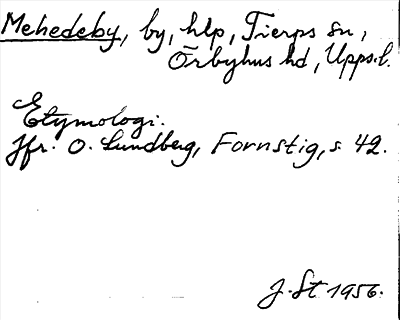 Mehedeby, by, hlp, Tierps sn,
Örbyhus hd, Upps. l.
Etymologi.
Jfr. O. Lundberg, Fornstig, s 42.
J. St 1956.